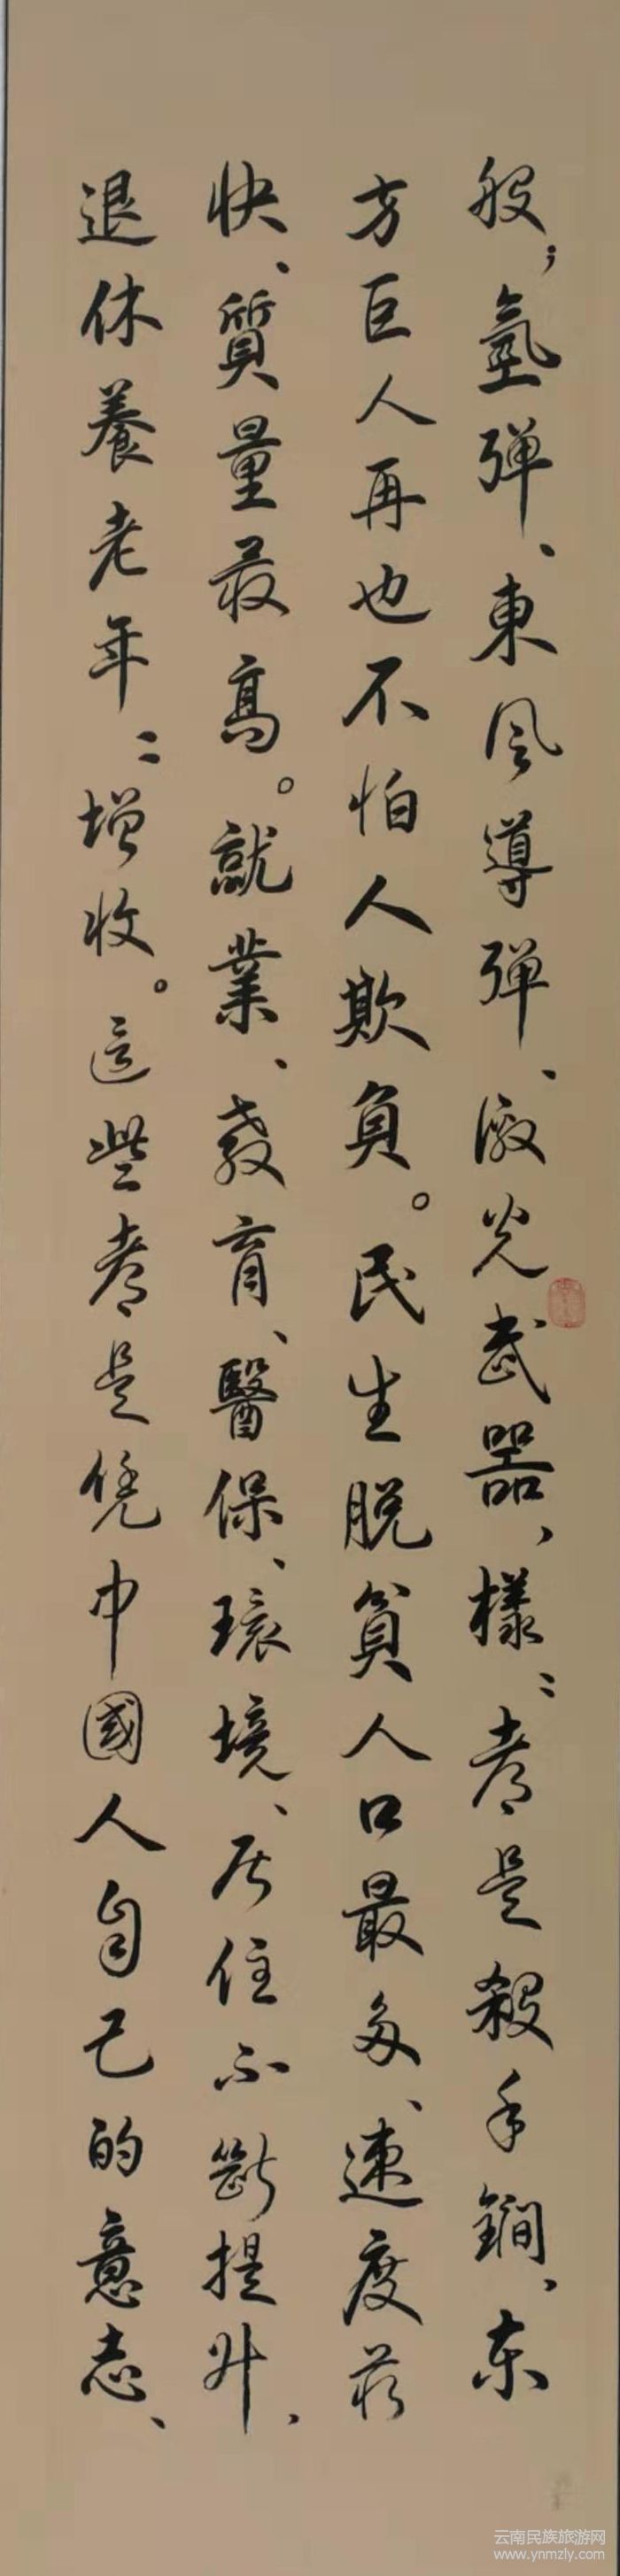 般，氫彈、東風導彈、激光武器、樣〻都是殺手鐧、东
方巨人再也不怕人欺負。民生脱貧人口最多、速度最
快、質量最高。就業、教育、醫保、環境、居住不斷提升、
退休養老年〻增收。這些都是凭中國人自己的意志、
云南民族旅游网
www.ynmzly.com